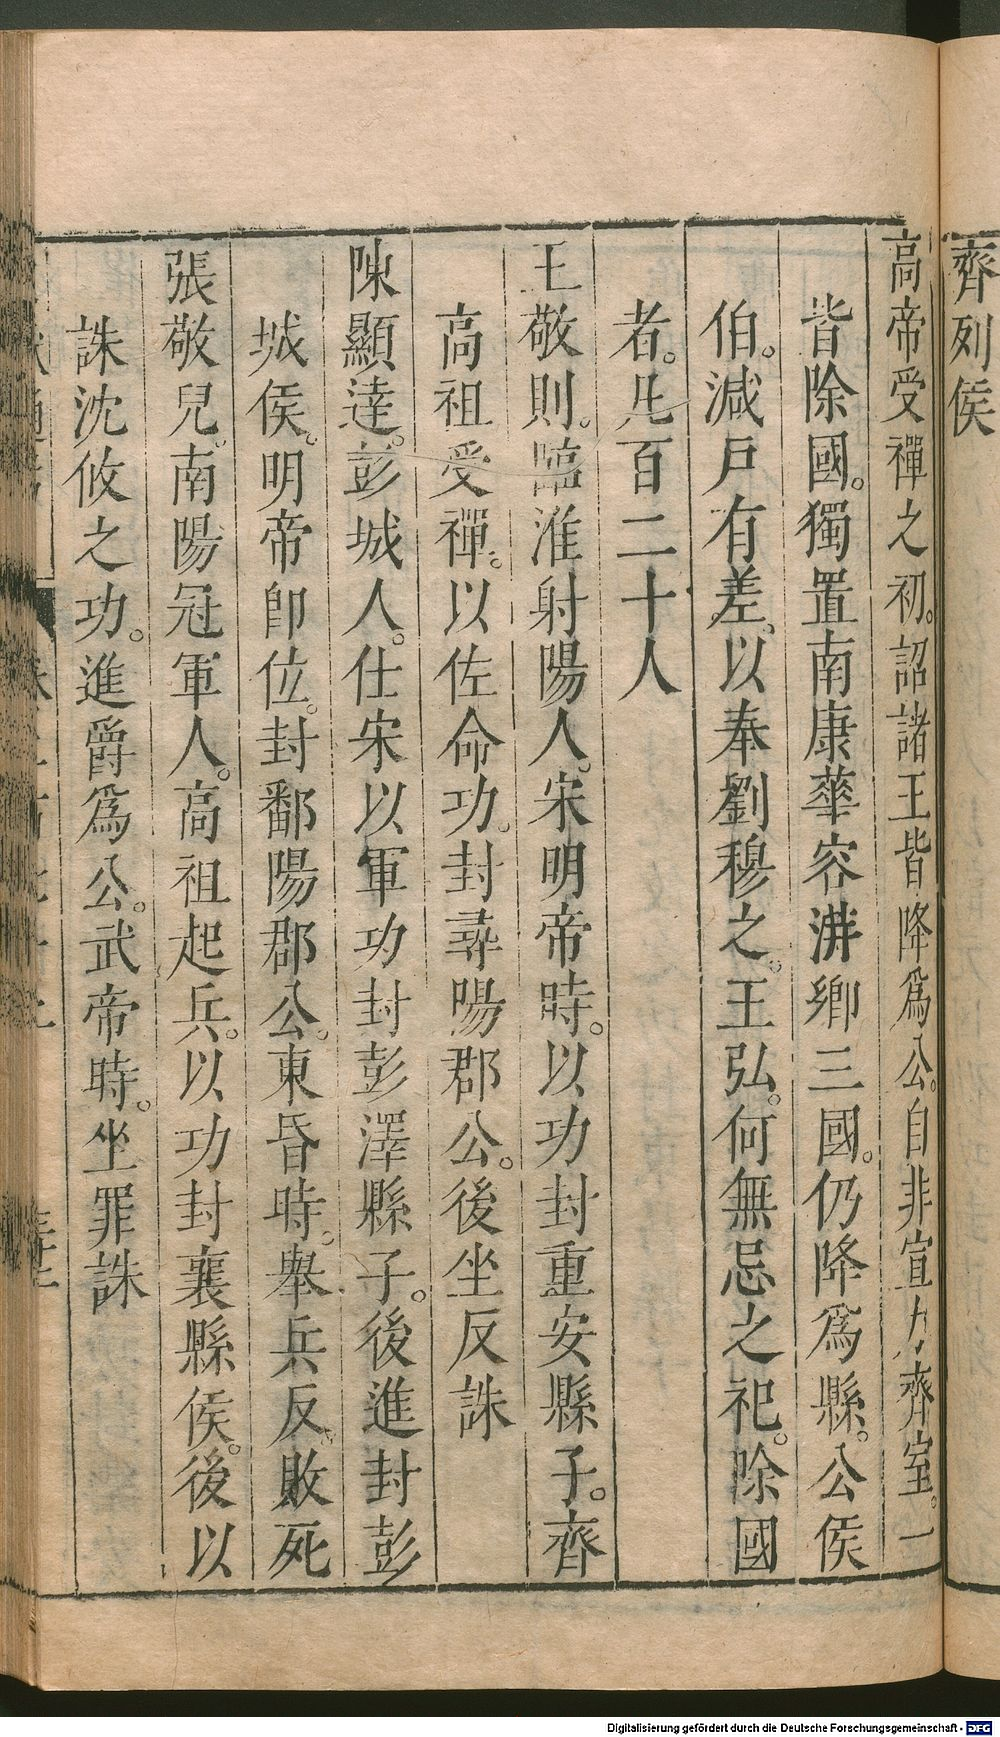 齊列侯
高帝受禪之初。詔諸王皆降爲公。自非宣力齊室。一
皆除國。獨置南康華容蓱鄉三國。仍降爲縣。公侯
伯。減戶有差。以奉劉穆之。王弘。何無忌之祀。除國
者。凡百二十人
王敬則。臨淮射陽人。宋明帝時。以功封重安縣子。齊
高祖受禪。以佐命功。封尋陽郡公。後坐反誅
陳顯達。彭城人。仕宋以軍功封彭澤縣子。後進封彭
城侯。明帝卽位。封鄱陽郡公。東昏時。舉兵反。敗死
張敬兒。南陽冠軍人。高祖起兵。以功封襄縣侯。後以
誅沈攸之功。進爵爲公。武帝時。坐罪誅
Digitalisierung gefördert durch die Deutsche Forschungsgemeinschaft - DFG